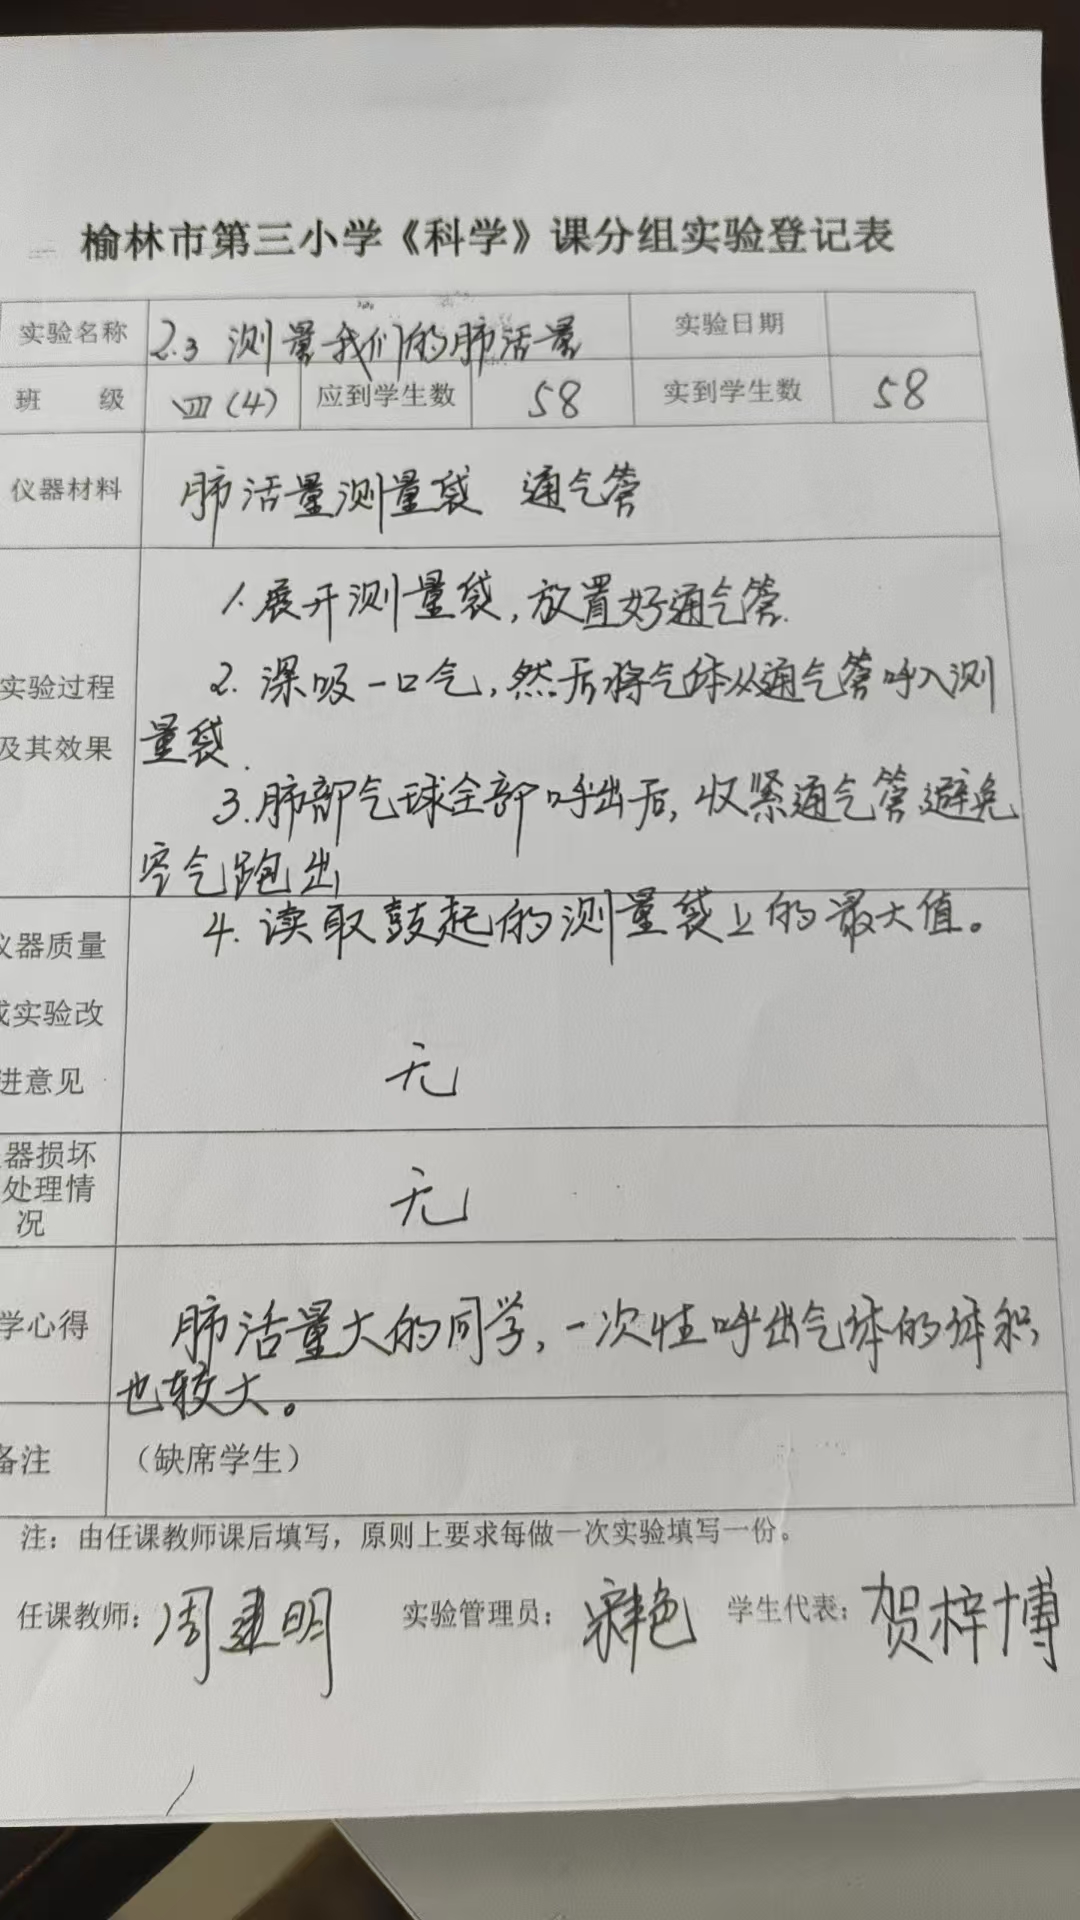 榆林市第三小学《科学》课分组实验登记表
实验名称 2.3 测量我们的肺活量 实验日期
班 级 四(4) 应到学生数 58 实到学生数 58
仪器材料 肺活量测量袋 通气管
1.展开测量袋,放置好通气管.
实验过程 2.深吸一口气,然后将气体从通气管呼入测
及其效果 量袋.
3.肺部气球全部呼出后,收紧通气管避免
空气跑出
4.读取鼓起的测量袋上的最大值。
仪器质量
或实验改
进意见 无
器损坏
处理情 无
况
学心得 肺活量大的同学,一次性呼出气体的体积
也较大。
备注 (缺席学生)
注:由任课教师课后填写,原则上要求每做一次实验填写一份。
任课教师:周建明 实验管理员: 学生代表:贺梓博